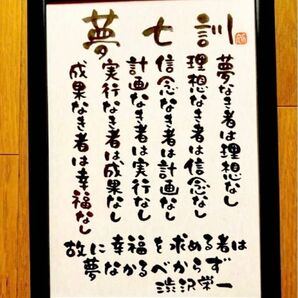 夢七訓
夢なき者は理想なし
理想なき者は信念なし
信念なき者は計画なし
計画なき者は実行なし
実行なき者は成果なし
成果なき者は幸福なし
故に幸福を求める者は
夢なかるべからず
渋沢栄一